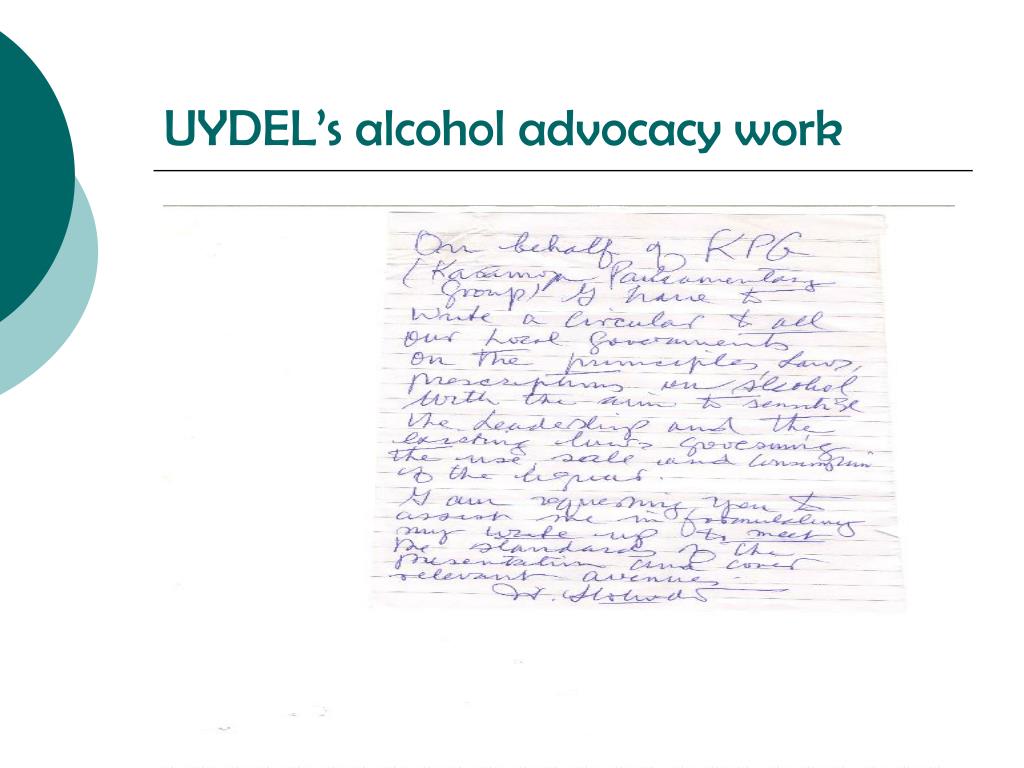 UYDEL's alcohol advocacy work
On behalf of KPG
(Karamoja Parliamentary
Group) I have to
write a circular to all
our Local Governments
on the principles, Laws,
prescriptions on alcohol
with the aim to sensitise
the Leadership and the
existing laws governing
the use, sale and consumption
of the liquor.
I am requesting you to
assist me in formulating
my write up to meet
the standards of the
presentation and cover
relevant avenues.